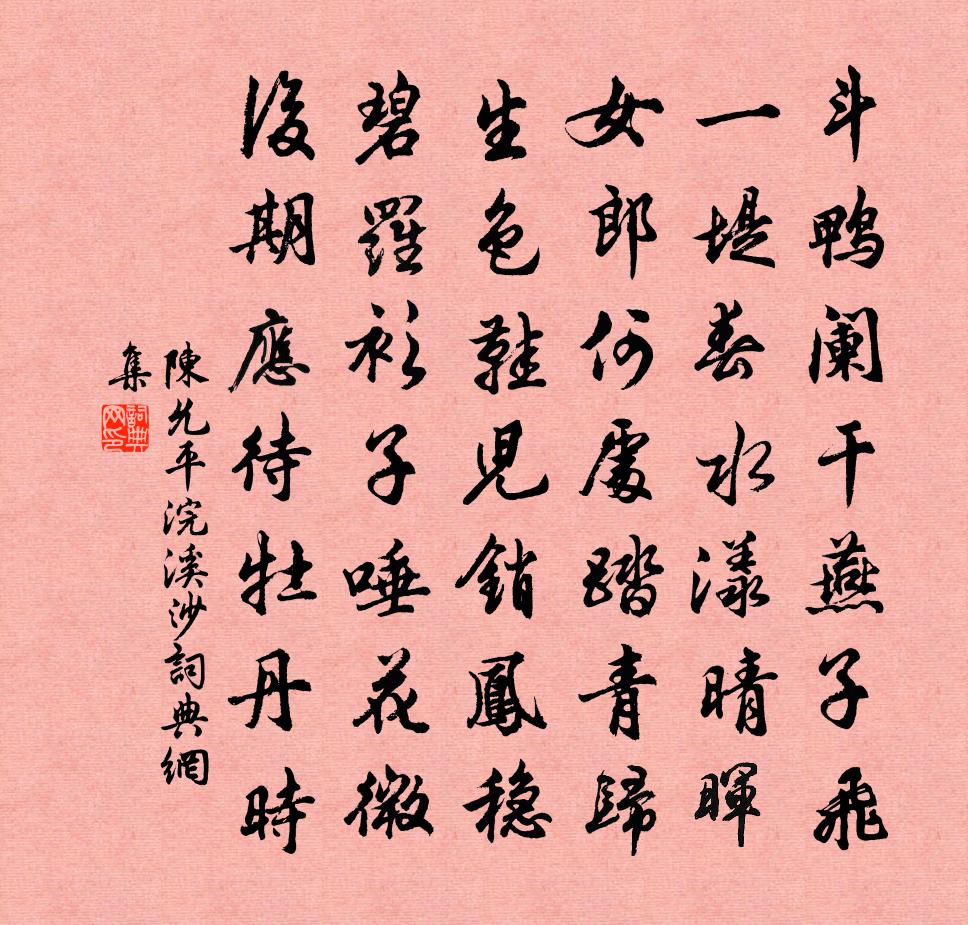 斗鴨阑干燕子飛
一堤春水漾晴暉
女郎何處踏青歸
生色鞋兒銷鳳穩
碧羅衫子唾花微
後期應待牡丹時
陳允平浣溪沙詞典網
集
詞典网印